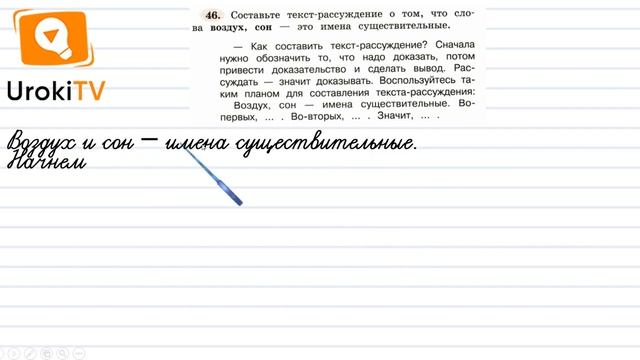 46. Составьте текст-рассуждение о том, что сло-
ва воздух, сон — это имена существительные.
— Как составить текст-рассуждение? Сначала
нужно обозначить то, что надо доказать, потом
привести доказательство и сделать вывод. Рас-
суждать — значит доказывать. Воспользуйтесь та-
ким планом для составления текста-рассуждения:
Воздух, сон — имена существительные. Во-
первых, ... . Во-вторых, ... . Значит, ... .
UrokiTV
Воздух и сон — имена существительные.
Начнем